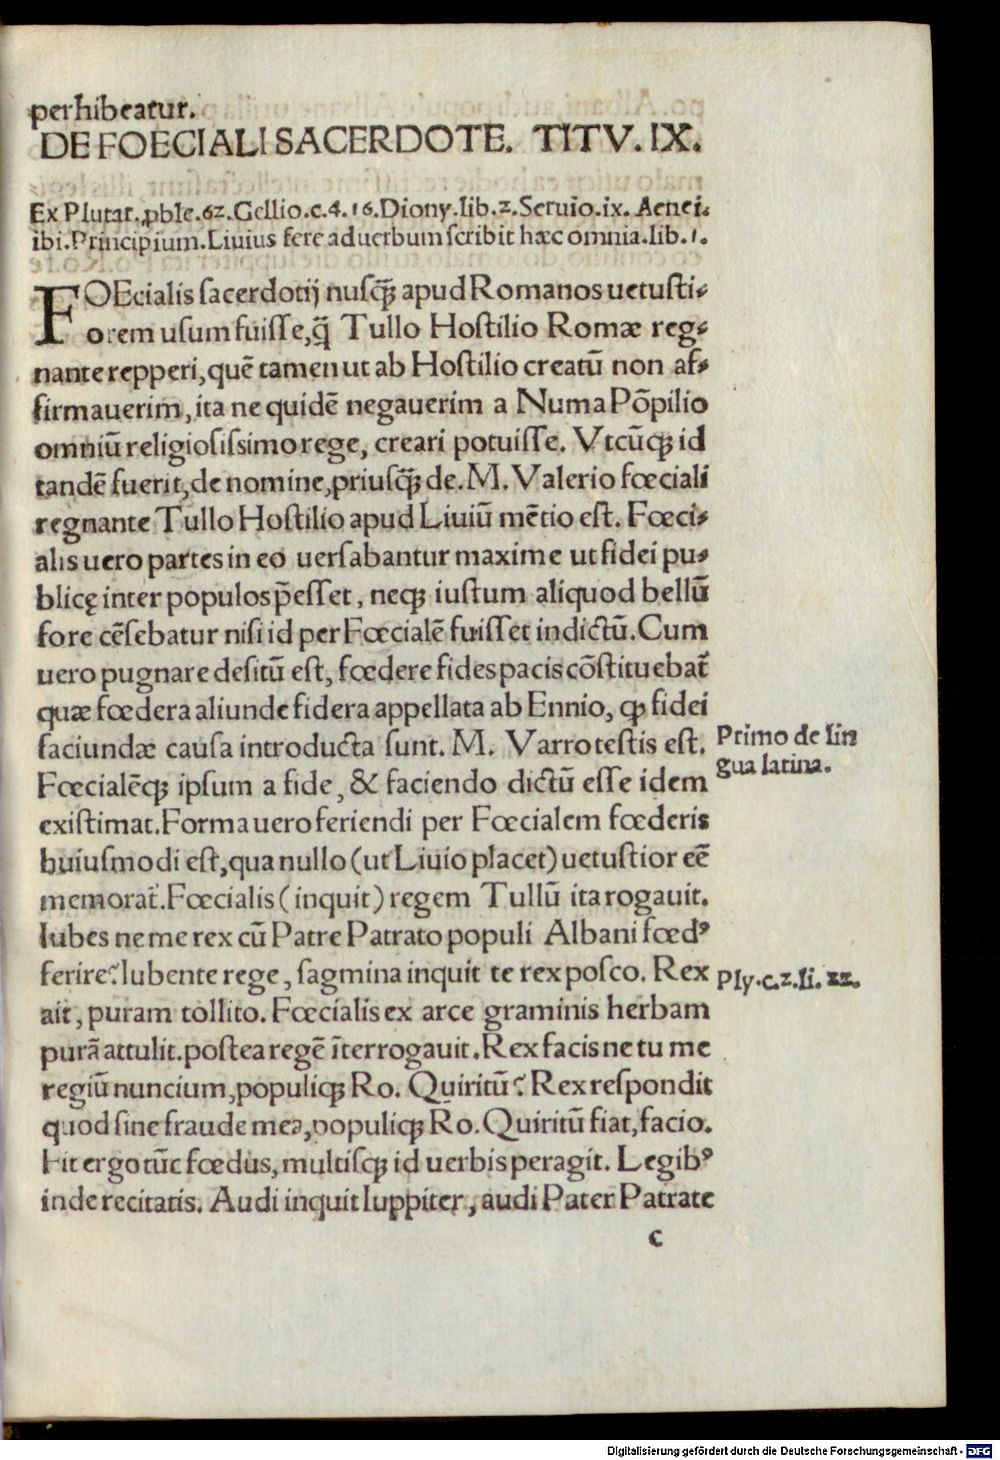 perhibeatur.
DE FOECIALI SACERDOTE. TITV. IX.
Ex Plutar. ꝓble.62. Gellio.c.4.16. Diony.lib.2. Seruio.ix. Aenei.
ibi. Principium. Liuius fere ad uerbum scribit hæc omnia.lib.1.
FOEcialis sacerdotij nusq̃ apud Romanos uetusti-
orem usum fuisse, q̃ Tullo Hostilio Romæ reg-
nante repperi, quē tamen ut ab Hostilio creatū non af-
firmauerim, ita ne quidē negauerim a Numa Pōpilio
omniū religiosissimo rege, creari potuisse. Vtcūqꝫ id
tandē fuerit, de nomine, priusq̃ de. M. Valerio fœciali
regnante Tullo Hostilio apud Liuiū mētio est. Fœci-
alis uero partes in eo uersabantur maxime ut fidei pu-
blicę inter populos p̄esset, neqꝫ iustum aliquod bellū
fore cēsebatur nisi id per Fœcialē fuisset indictū. Cum
uero pugnare desitū est, fœdere fides pacis cōstituebat᷑
quæ fœdera aliunde fidera appellata ab Ennio, ꝙ fidei
faciundæ causa introducta sunt. M. Varro testis est.
Primo de lin
gua latina.
Fœcialēqꝫ ipsum a fide, & faciendo dictū esse idem
existimat. Forma uero feriendi per Fœcialem fœderis
huiusmodi est, qua nullo (ut Liuio placet) uetustior eē
memorat᷑. Fœcialis (inquit) regem Tullū ita rogauit.
Iubes ne me rex cū Patre Patrato populi Albani fœdꝰ
ferire? Iubente rege, sagmina inquit te rex posco. Rex
Ply.c.2.li.22.
ait, puram tollito. Fœcialis ex arce graminis herbam
purā attulit. postea regē īterrogauit. Rex facis ne tu me
regiū nuncium, populiqꝫ Ro. Quiritū? Rex respondit
quod sine fraude mea, populiqꝫ Ro. Quiritū fiat, facio.
Fit ergo tūc fœdus, multisqꝫ id uerbis peragit. Legibꝰ
inde recitatis. Audi inquit Iuppiter, audi Pater Patrate
c
Digitalisierung gefördert durch die Deutsche Forschungsgemeinschaft - DFG